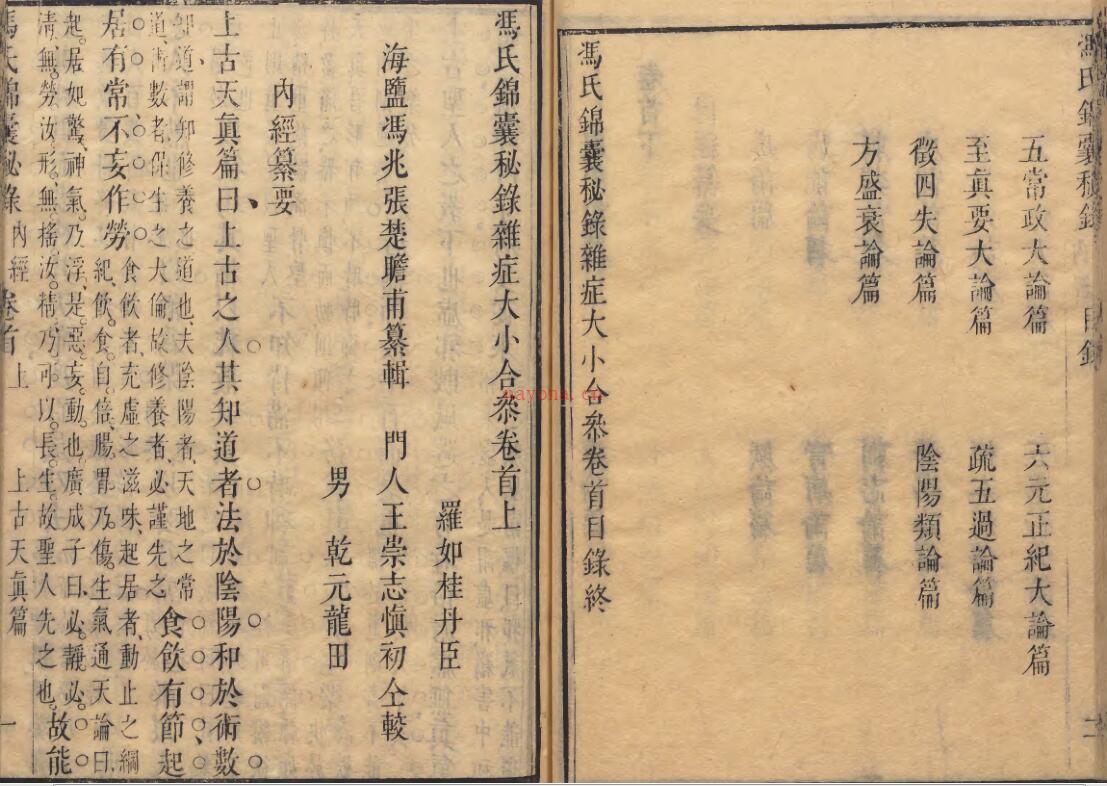 馮氏錦囊秘錄 目錄 二
五常政大論篇 六元正紀大論篇
至眞要大論篇 疏五過論篇
徵四失論篇 陰陽類論篇
方盛衰論篇
馮氏錦囊秘錄雜症大小合叅卷首目錄終
nayona.cn
馮氏錦囊秘錄雜症大小合叅卷首上
羅如桂丹臣
海鹽馮兆張楚瞻甫纂輯 門人王崇志愼初仝較
男 乾元龍田
內經纂要
上古天眞篇曰上古之人其知道者法於陰陽和於術數
知道謂知修養之道也夫陰陽者天地之常
道術數者保生之大倫故修養者必謹先之
食飲有節起
居有常不妄作勞
食飲者充虛之滋味起居者動止之綱
紀飲食自倍腸胃乃傷生氣通天論曰
起居如驚神氣乃浮是惡妄動也廣成子曰必靜必
清無勞汝形無搖汝精乃可以長生故聖人先之也
故能
馮氏錦囊秘錄 內經 卷首上 上古天眞篇 一